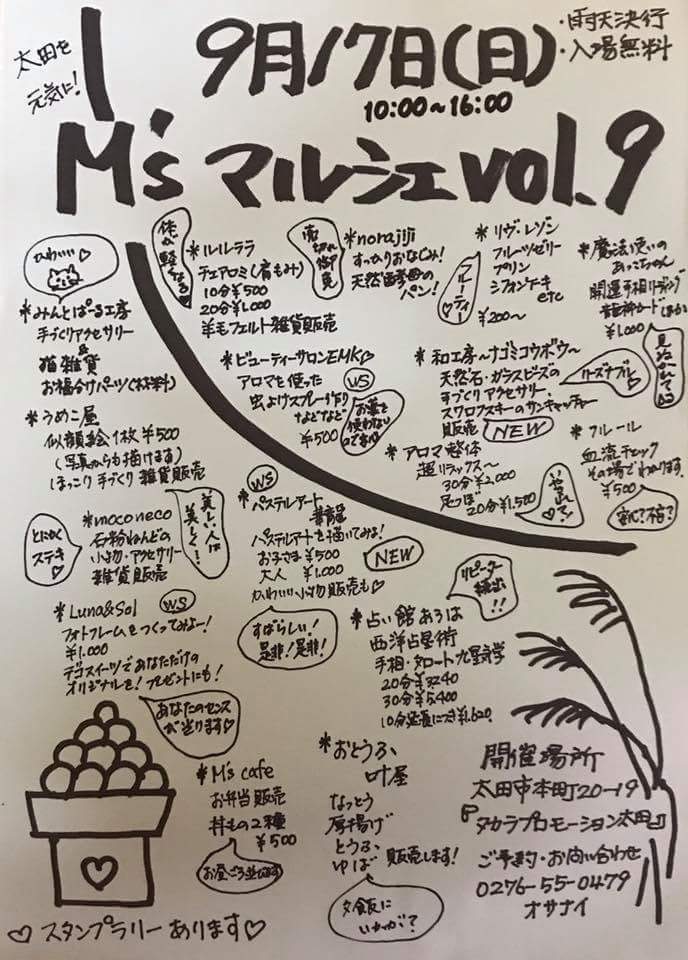 太田を
元気に！
9月17日(日)
・雨天決行
・入場無料
10:00～16:00
M's マルシェ vol.9
かわいい♡
*みんとぱーる工房
手づくりアクセサリー
&
猫雑貨
お福分けパーツ(材料)
体が軽くなる♡
*ルルララ
チェアロミ(肩もみ)
10分¥500
20分¥1,000
羊毛フェルト雑貨販売
売切れ御免
*norajiji
すっかりおなじみ！
天然酵母の
パン！
*リヴ・レゾン
フルーツゼリー
プリン
シフォンケーキ
etc
¥200～
フルーティー
*魔法使いの
あっこちゃん
開運手相リーディング
龍神カードほか
¥1,000
*ビューティーサロンEMK♡
アロマを使った
虫よけスプレー作り
などなど
¥500
WS
お薬を
使わない
*和工房～ナゴミコウボウ～
天然石・ガラスビーズの
手づくりアクセサリー、
スワロフスキーのサンキャッチャー
販売
NEW
リーズナブル♡
*うめこ屋
似顔絵1枚¥500
(写真からも描けます)
ほっこり手づくり雑貨販売
*アロマ整体
超リラックス～
30分¥2,000
足つぼ
20分¥1,500
いやされて！
*フルール
血流チェック
その場でわかります。
¥500
とにかく
ステキ♡
*moconeco
石粉ねんどの
小物・アクセサリー
雑貨販売
美しい人は
美しく！
WS
*パステルアート
パステルアートを描いてみよ！
お子さま¥500
大人 ¥1,000
かわいい小物販売も♡
NEW
すばらしい！
是非！是非！
*Luna&Sol
WS
フォトフレームをつくってみよー！
¥1,000
デコスイーツであなただけの
オリジナルを！プレゼントにも！
あなたのセンス
が光ります♡
リピーター
続出
!!
*占い館あろは
西洋占星術
手相・タロート九星気学
20分¥3,240
30分¥5,400
10分延長につき¥1,620
*M's cafe
お弁当販売
丼もの2種
¥500
*おとうふ
叶屋
なっとう
厚揚げ
とうふ
ゆば 販売します！
夕飯に
いかが？
開催場所
太田市本町20-19
『タカラプロモーション太田』
ご予約・お問い合わせ
0276-55-0479
オサナイ
♡スタンプラリーあります♡